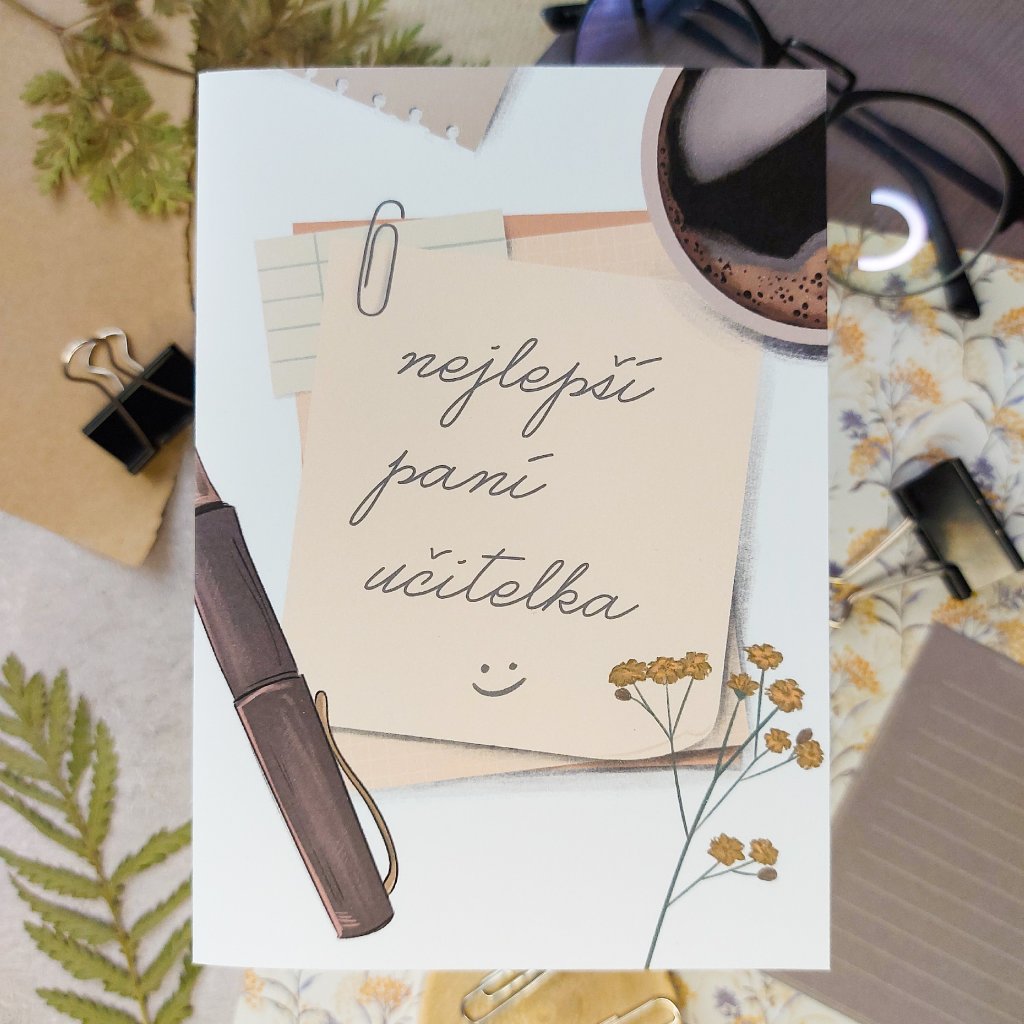 nejlepší
paní
učitelka